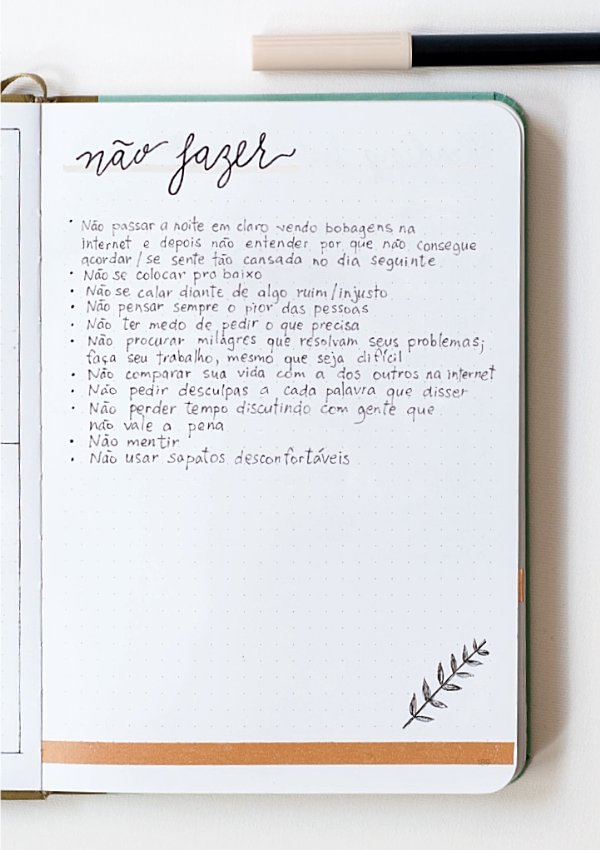 não fazer
• Não passar a noite em claro vendo bobagens na
internet e depois não entender por que não consegue
acordar/se sente tão cansada no dia seguinte
• Não se colocar pra baixo
• Não se calar diante de algo ruim/injusto
• Não pensar sempre o pior das pessoas
• Não ter medo de pedir o que precisa
• Não procurar milagres que resolvam seus problemas;
faça seu trabalho, mesmo que seja difícil
• Não comparar sua vida com a dos outros na internet
• Não pedir desculpas a cada palavra que disser
• Não perder tempo discutindo com gente que
não vale a pena
• Não mentir
• Não usar sapatos desconfortáveis